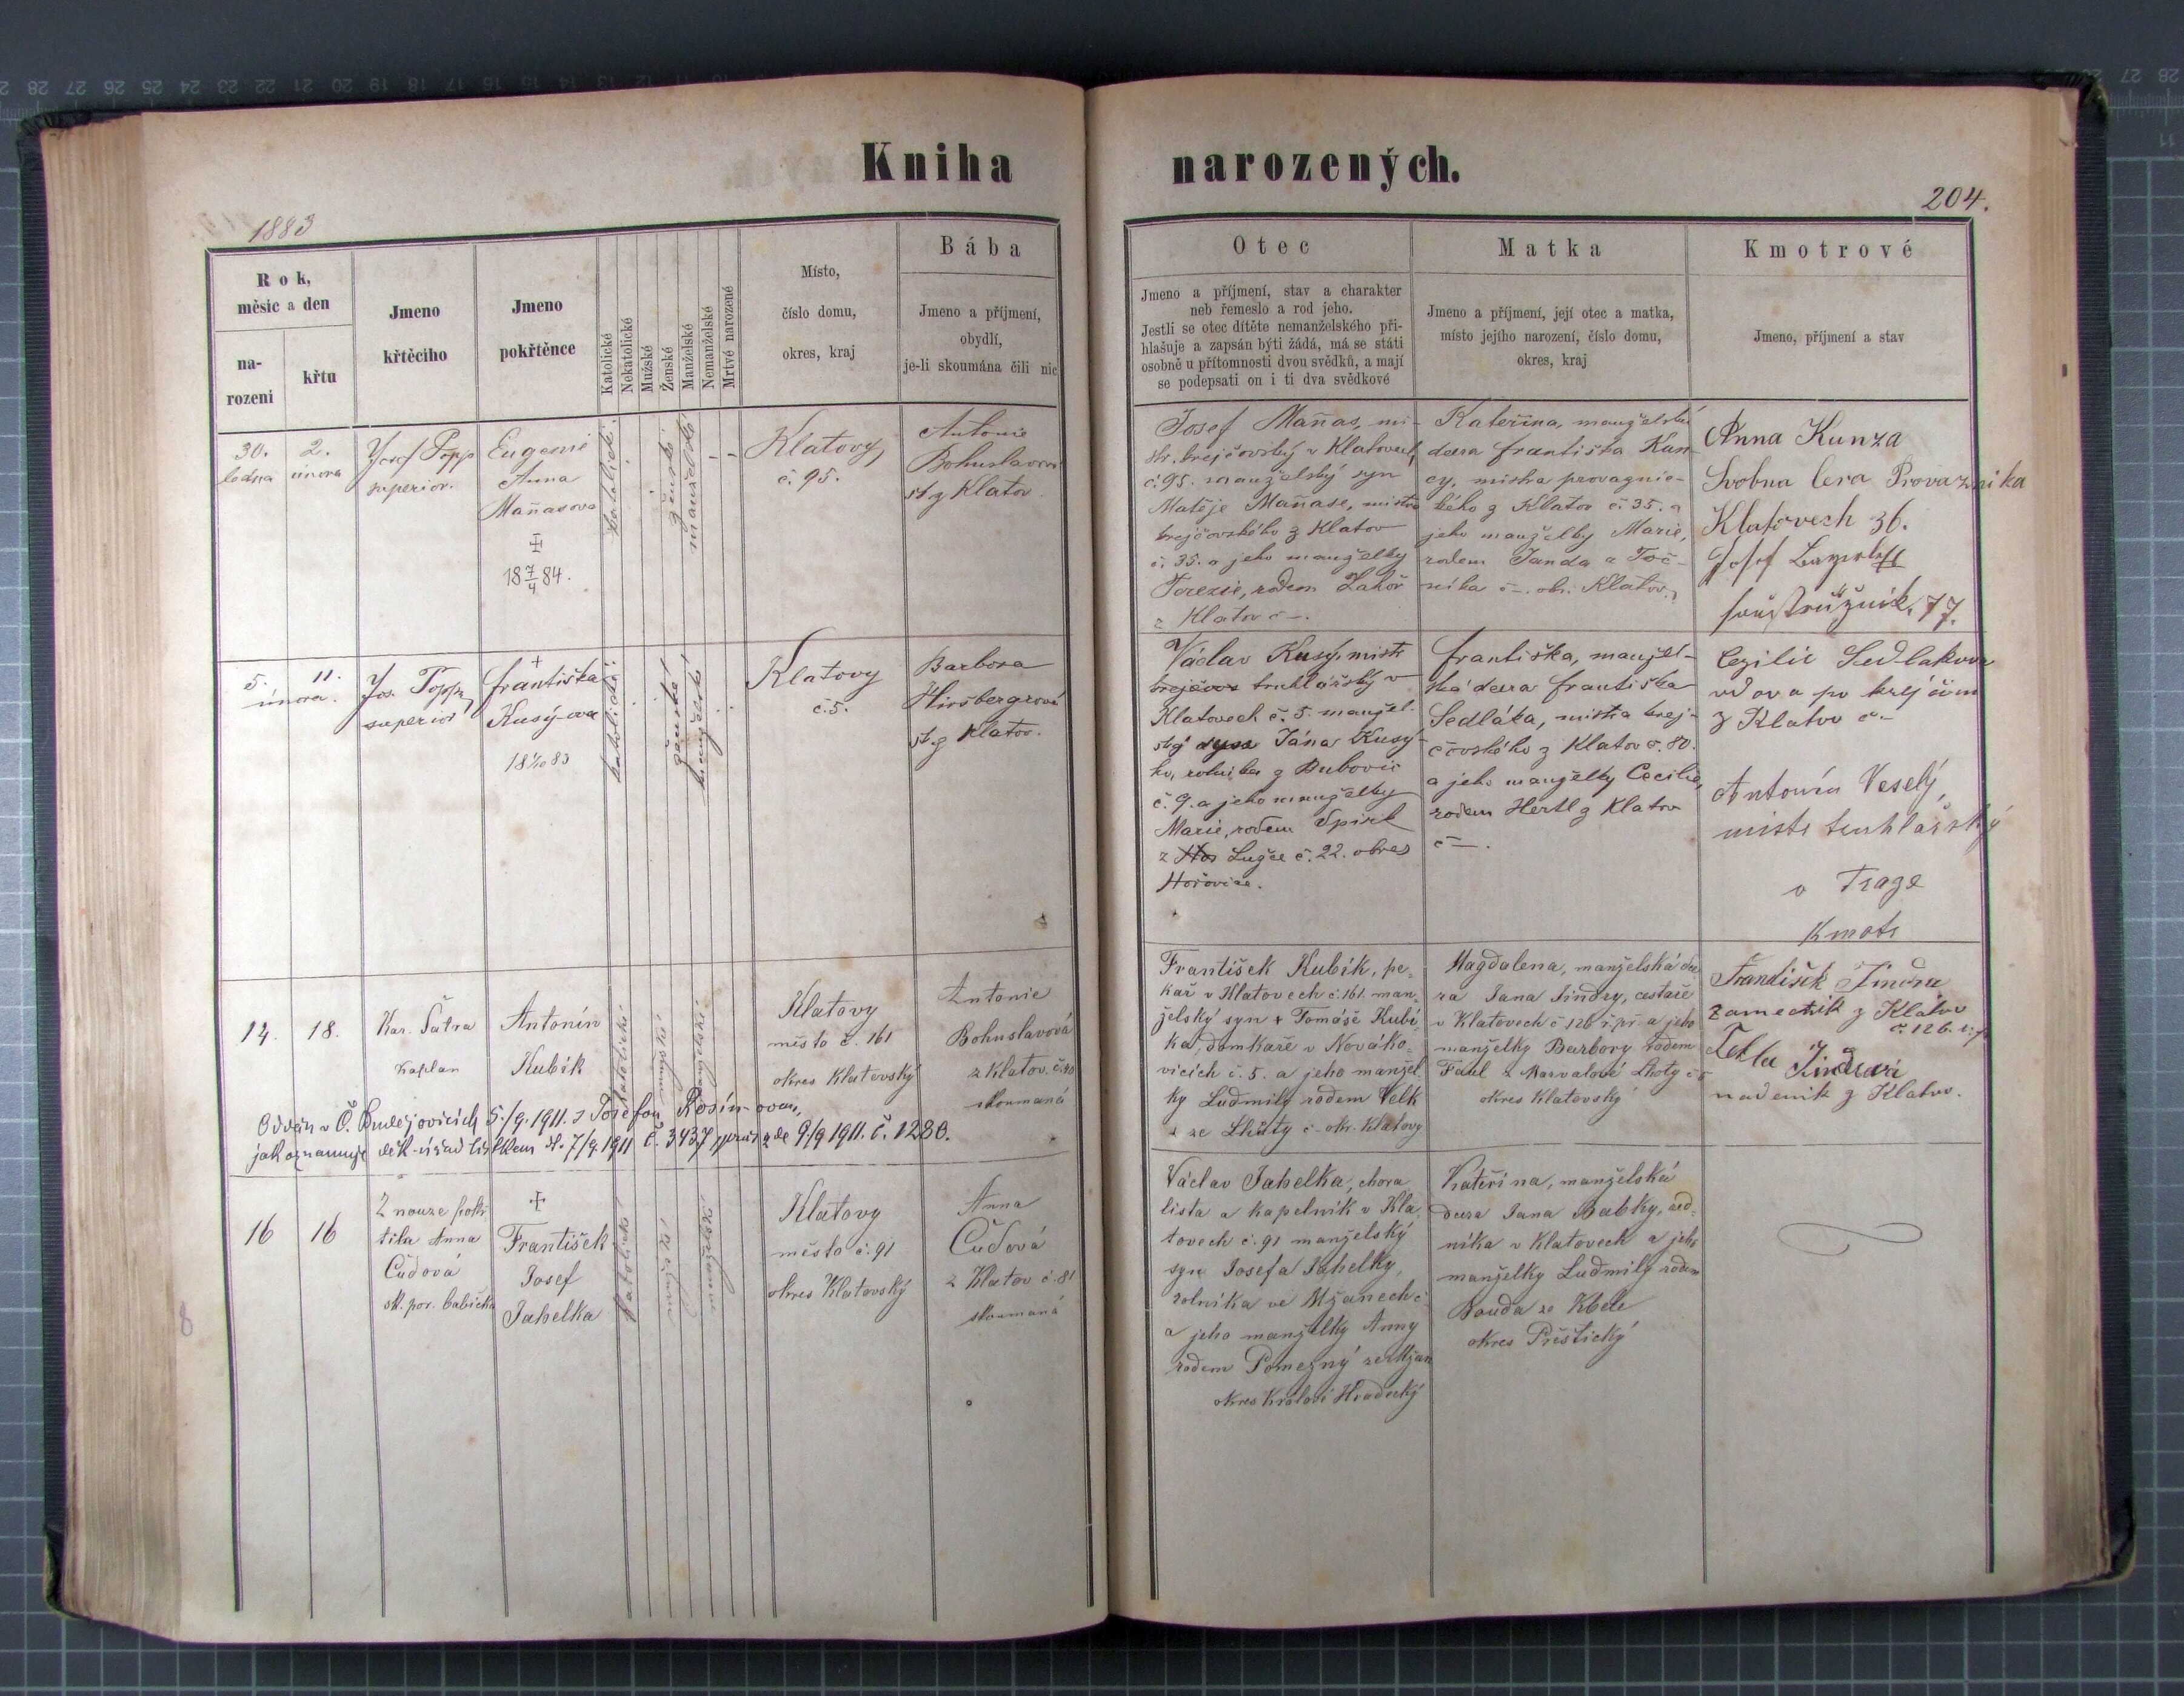 Kniha narozených.
1883
204.
Rok,
měsíc a den
na-
rozeni
křtu
Jmeno
křtěcího
Jmeno
pokřtěnce
Katolické
Nekatolické
Mužské
Ženské
Manželské
Nemanželské
Mrtvé narozené
Místo,
číslo domu,
okres, kraj
Bába
Jmeno a příjmení,
obydlí,
je-li skoumána čili nic
Otec
Jmeno a příjmení, stav a charakter
neb řemeslo a rod jeho.
Jestli se otec dítěte nemanželského při-
hlašuje a zapsán býti žádá, má se státi
osobně u přítomnosti dvou svědků, a mají
se podepsati on i ti dva svědkové
Matka
Jmeno a příjmení, její otec a matka,
místo jejího narození, číslo domu,
okres, kraj
Kmotrové
Jmeno, příjmení a stav
30.
ledna
2.
února
Josef Popp
superior.
Eugenie
Anna
Maňasova
18 7/4 84.
katolické
ženské
manželské
Klatovy,
č. 95.
Antonie
Bohuslavova
st. z Klatov
Josef Maňas, mi-
str. krejčovský v Klatovech
č. 95. manželský syn
Matěje Maňase, mistra
krejčovského z Klatov
č. 35. a jeho manželky
Terezie, rodem Zahoř
z Klatov č –.
Kateřina, manželská
dcera Františka Kun-
cy, mistra provaznic-
kého z Klatov č. 35. a
jeho manželky Marie,
rodem Janda z Toč-
níka č –. okr. Klatov.
Anna Kunza
Svobna cera Provaznika
Klatovech 36.
Josef
soustružník, 77.
5.
února.
11.
Jos. Popp,
superior
+
Františka
Kusý-ova
18 1/10 83
katolické
ženské
manželské
Klatovy
č. 5.
Barbora
Hiršbergrová
st. z Klatov.
Václav Kusý, mistr
krejčov truhlářský v
Klatovech č. 5. manžel-
ský syn Jána Kusý-
ho, rolníka z Bubovic
č. 9. a jeho manželky
Marie, rodem Spirk
z Hoř Lužce č. 22. okres
Hořovice.
Františka, manžel-
ská dcera Františka
Sedláka, mistra krej-
čovského z Klatov č. 80.
a jeho manželky Cecilie,
rodem Hertl z Klatov
č –.
Cezilie Sedlakova
vdova po krejčím
z Klatov č–
Antonín Veselý,
mistr truhlařský
v Praze
kmotr
14.
18.
Kar. Šatra
kaplan
Antonín
Kubík
katolické
mužské
manželské
Klatovy
město č. 161
okres Klatovský
Antonie
Bohuslavová
z Klatov. č. 40
skoumaná
František Kubík, pe-
kař v Klatovech č. 161. man-
želský syn + Tomáše Kubí-
ka, domkaře v Nováko-
vicích č. 5. a jeho manžel-
ky Ludmily rodem Velk
z ze Lhůty č – okr. Klatovy
Magdalena, manželská dce-
ra Jana Jindry, cestáře
v Klatovech č 126 ř. př. a jeho
manželky Barbory rodem
Faul z Marvalové Lhoty č 5
okres Klatovský
František Jindra
zamečník z Klatov
č. 126. ř. p.
Tekla Jindrová
nadeník z Klatov.
Oddán v Č. Budějovicích 5./9. 1911. s Josefou Rosín-ovou,
jak oznamuje děk. úřad lístkem d. 7/9. 1911 č. 3437 zde 9/9 1911. č. 1280.
16
16
Z nouze pokř-
tila Anna
Čudová
sk. por. babička
František
Josef
Jahelka
katolické
mužské
manželské
Klatovy
město č. 91
okres Klatovský
Anna
Čudová
z Klatov č. 81
skoumaná
Václav Jahelka, chora-
lista a kapelník v Kla-
tovech č. 91 manželský
syn Josefa Jahelky,
rolníka ve Mžanech č
a jeho manželky Anny
rodem Pomezný ze Mžan
okres Králové Hradecký
Kateřina, manželská
dcera Jana Babky, zed-
níka v Klatovech a jeho
manželky Ludmily rodem
Bouda ze Kbele
okres Přeštický
8